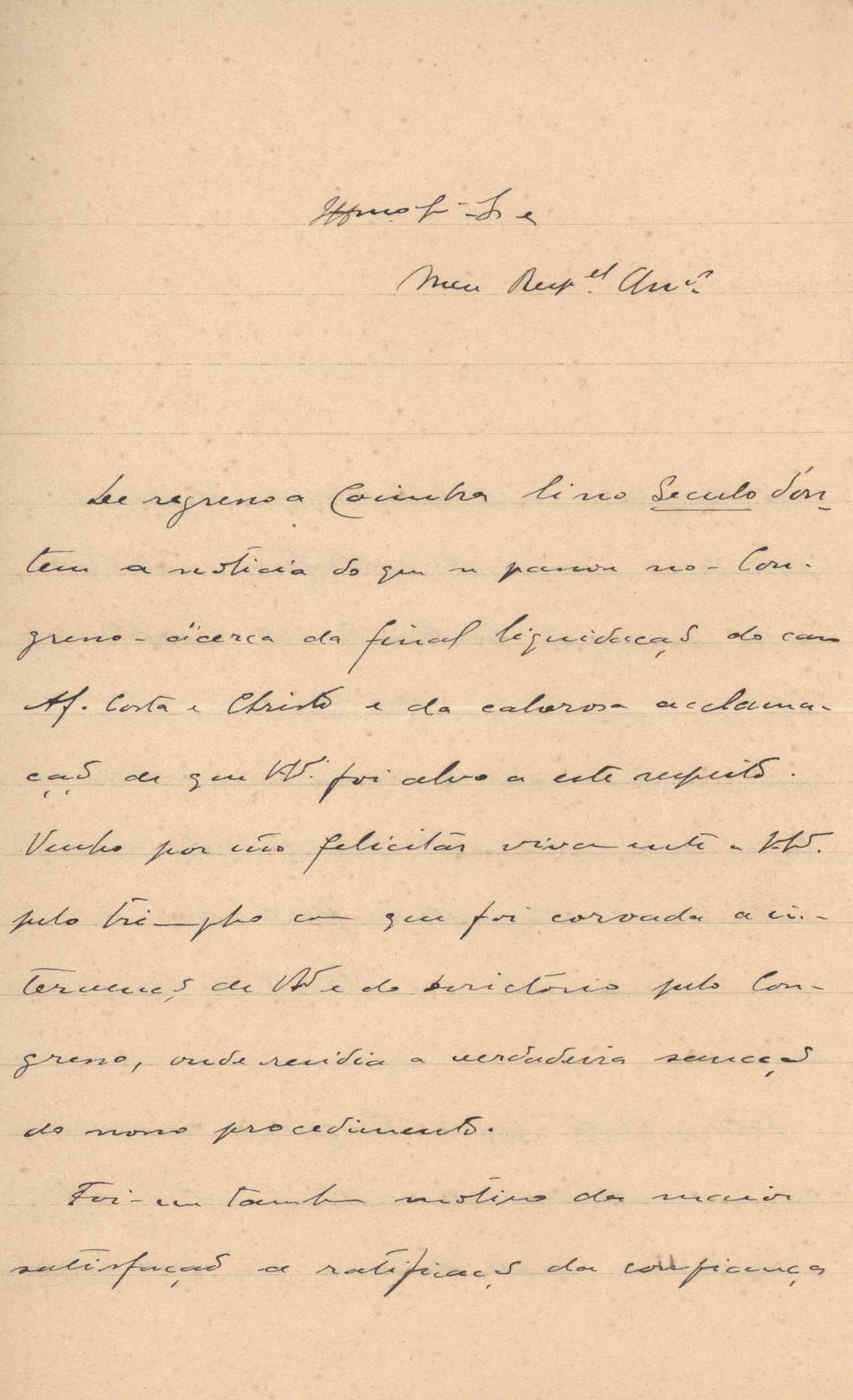 Illmo Sr e
Meu Respel Amo
De regresso a Coimbra li no Seculo d'on-
tem a noticia do que se passou no Con-
gresso ácerca da final liquidação do caso
Af. Costa e Christo e da calorosa acclama-
ção de que V. foi alvo a este respeito.
Venho por isso felicitar vivamente a V.
pelo triumpho com que foi coroada a in-
tervenção de V. e do Directório pelo Con-
gresso, onde residia a verdadeira sancção
do nosso procedimento.
Foi-me tambem motivo da maior
satisfação a ratificação da confiança